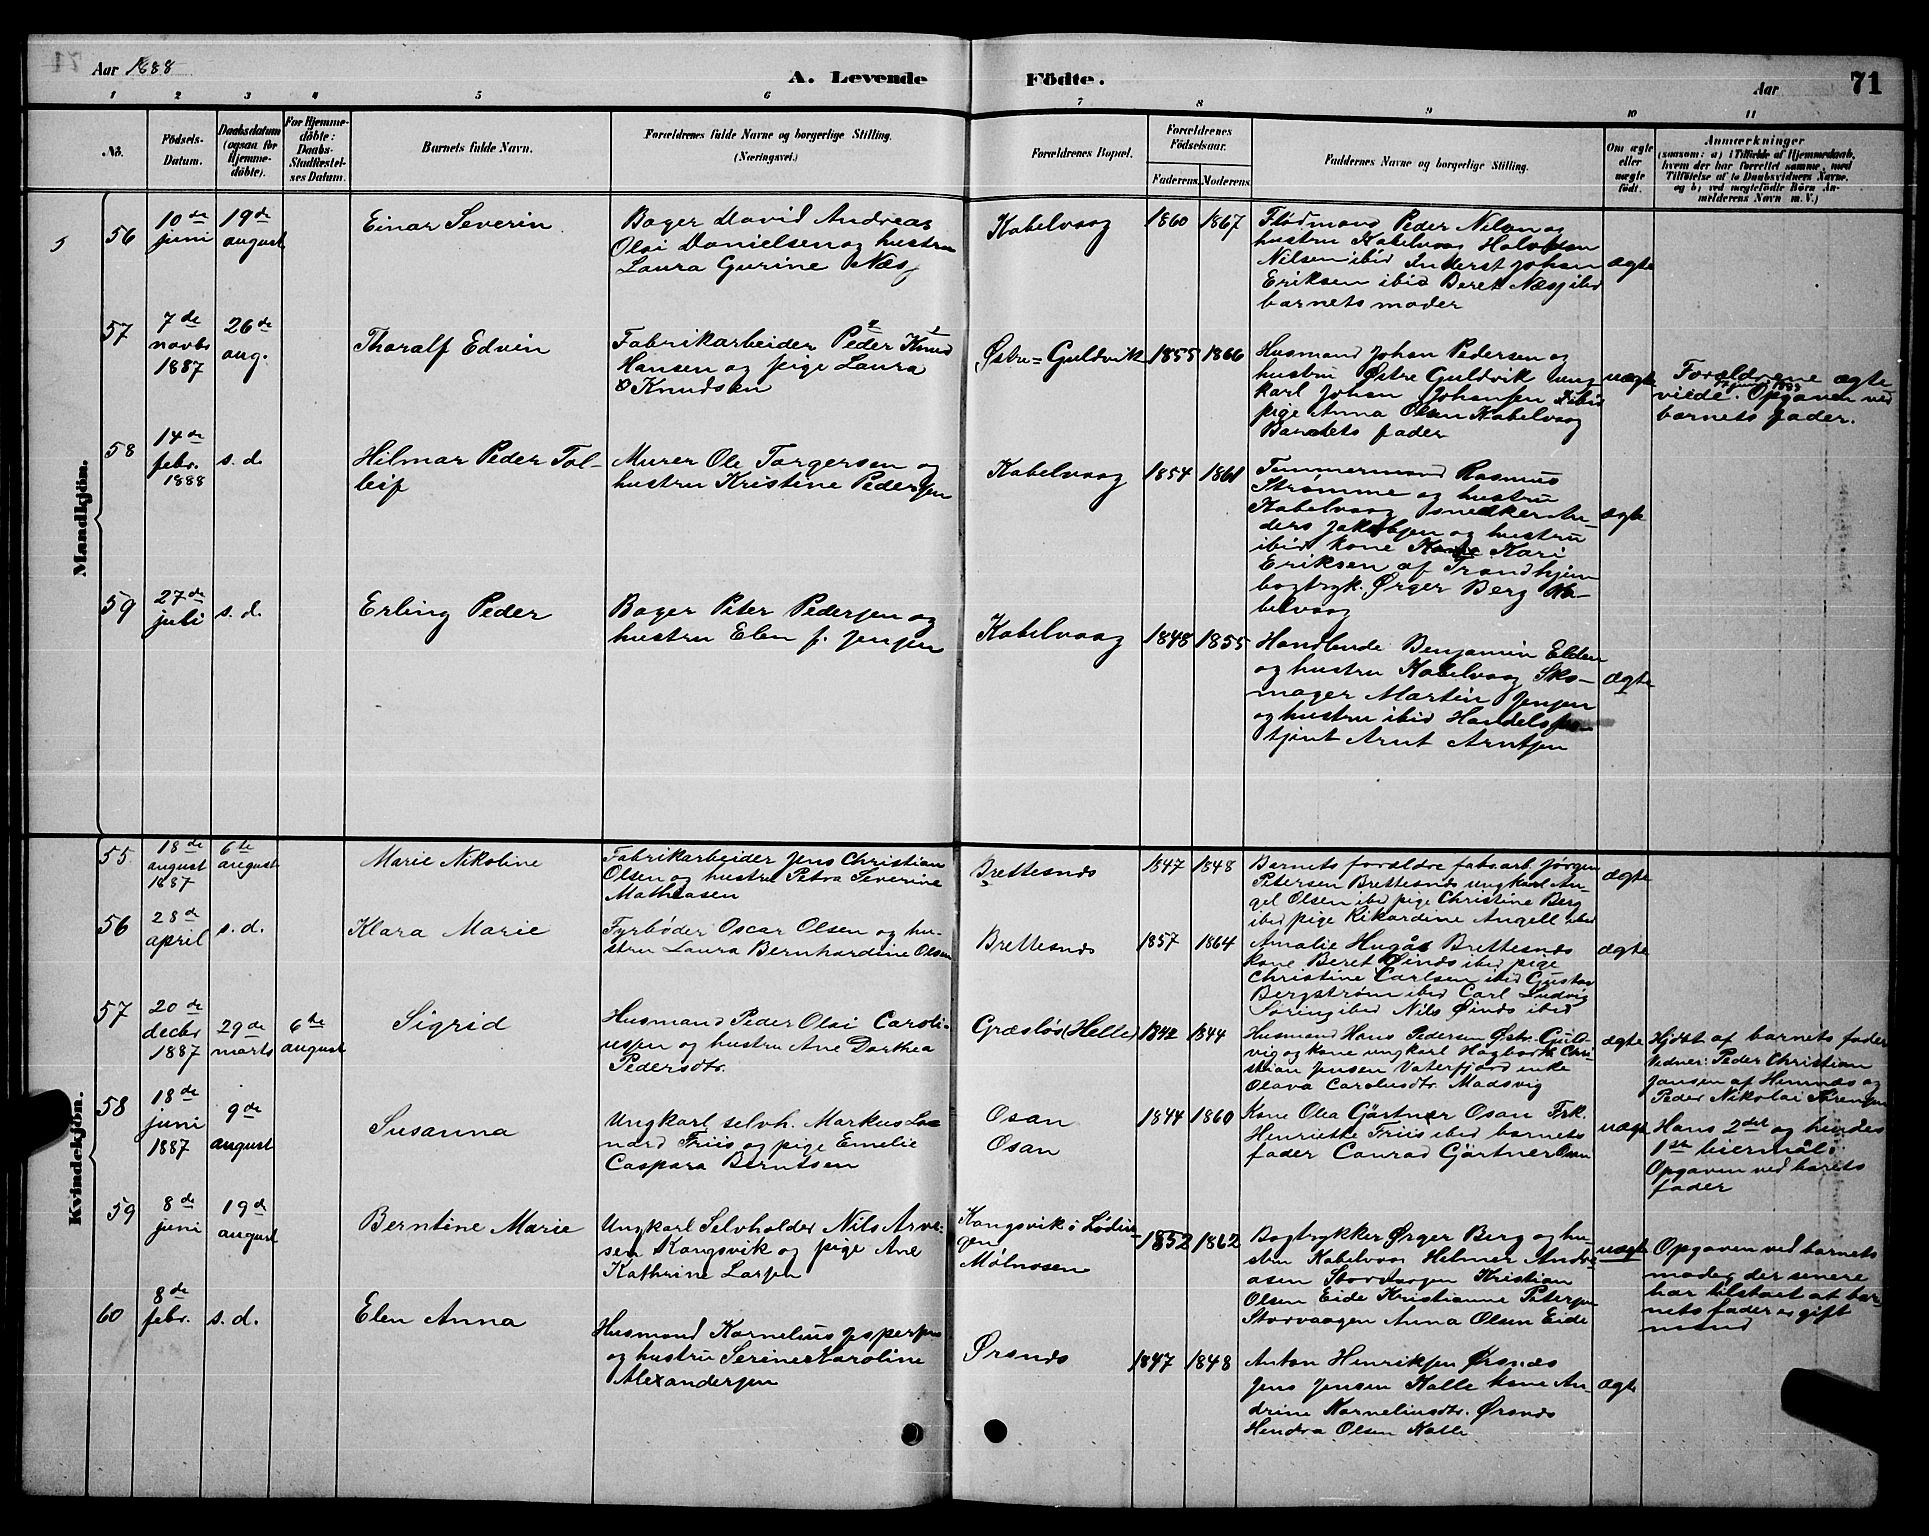 Aar 1888
A. Levende
Födte.
Aar
71
1 2 3 4 5 6 7 8 9 10 11
No.
Födsels-
Datum.
Daabsdatum
(ogsaa for
Hjemme-
döbte).
For Hjemme-
döbte:
Daabs-
Stadfæstel-
ses Datum.
Barnets fulde Navn.
Forældrenes fulde Navne og borgerlige Stilling.
(Næringsvei.)
Forældrenes Bopæl.
Forældrenes
Födselsaar.
Faderens. Moderens.
Faddernes Navne og borgerlige Stilling.
Om ægte
eller
uægte
født.
Anmærkninger
(saasom: a) i Tilfælde af Hjemmedaab,
hvem der har forrettet samme, med
Tilføielse af to Daabsvidners Navne,
og b) ved uægtefødte Børn An-
melderens Navn m. V.)
Mandkjön.
5
56
10de
juni
19de
august
Einar Severin
Bager David Andreas
Olai Danielsen og hustru
Laura Gurine Næs
Kabelvaag
1860 1867
Flødmand Peder Nilsen og
hustru Kabelvaag Halvor
Nilsen ibid Inderst Johan
Eriksen ibid Beret Næss ibid
barnets moder
ægte
57
7de
novbr
1887
26de
aug.
Tharalf Edvin
Fabrikarbeider Peder Knud
Hansen og pige Laura
Knudsen
Østre=Guldvik
1855 1866
Husmand Johan Pedersen og
hustru Østre Guldvik ung-
karl Johan Johansen ibid
pige Anna Olsen Kabelvaag
Barnets fader
uægte
Forældrene ægte
viede. Opgaven ved
barnets fader.
58
14de
febr.
1888
s. d.
Hilmar Peder Tol-
leif
Murer Ole Torgersen og
hustru Kristine Pedersen
Kabelvaag
1854 1861
Tømmermand Rasmus
Strømme og hustru
Kabelvaag snedker An-
ders Jakobsen og hustru
ibid kone Kari
Eriksen af Trondhjem
bogtryk. Ørger Berg Ka-
belvaag
ægte
59
27de
juli
s. d.
Erling Peder
Bager Peter Pedersen og
hustru Elen f. Jensen
Kabelvaag
1848 1855
Handlende Benjamin Elden
og hustru Kabelvaag Sko-
mager Martin Jensen
og hustru ibid Handelsbe-
tjent Arnt Arntsen
ægte
Kvindekjön.
55
18de
august
1887
6te
august
Marie Nikoline
Fabrikarbeider Jens Christian
Olsen og hustru Petra Severine
Mathiasen
Brettesnæs
1847 1848
Barnets forældre fabr.arb. Jørgen
Petersen Brettesnæs ungkarl An-
gel Olsen ibid pige Christine Berg
ibid pige Rikardine Angell ibid
ægte
56
28de
april
s. d.
Klara Marie
Fyrbøder Oscar Olsen og hu-
stru Laura Bernhardine Olsen
Brettesnæs
1857 1864
Amalie Hugås Brettesnæs
kone Beret Øinæs ibid pige
Christine Carlsen ibid Gustav
Bergstrøm ibid Carl Ludvig
Søring ibid Nils Øinæs ibid
ægte
57
20de
decbr
1887
29de
marts
6te
august
Sigrid
Husmand Peder Olai Caroli-
ussen og hustru Ane Dorthea
Pedersdtr.
Græsløs (Helle)
1842 1844
Husmand Hans Pedersen Østr. Guld-
vig og kone ungkarl Hagbart Chri-
stian Jensen Vaterfjord enke
Olava Carolusdtr. Madsvig
ægte
Hjdbt af barnets fader
Vidner: Peder Christian
Jansen af Hemnæs og
Peder Nikolai Sørensen
58
18de
juni
1887
9de
august
Susanna
Ungkarl selvh. Markus Leo-
nard Friis og pige Emelie
Caspara Berntsen
Osan
Osan
1844 1860
Kone Olea Gärtner Osan Frk.
Henriette Friis ibid barnets
fader Conrad Gärtner Osan
uægte
Hans 2det og hendes
1ste leiermål.
Opgaven ved barets
fader
59
8de
juni
19de
august
Berntine Marie
Ungkarl Selvholder Nils Arve-
sen Kongsvik og pige Ane
Kathrine Larsen
Kongsvik i Lødin-
gen
Mølnosen
1852 1862
Bogtrykker Ørger Berg og hu-
stru Kabelvaag Helmer Andre-
asen Storvaagen Kristian
Olsen Eide Kristianne Petersen
Storvaagen Anna Olsen Eide
uægte
Opgaven ved barnets
moder, der senere
har tilstaat at bar-
nets fader er gift
mand
60
8de
febr.
s. d.
Elen Anna
Husmand Kornelius Jespersen
og hustru Serine Karoline
Alexandersen
Ørsnæs
1847 1848
Anton Henriksen Ørsnæs
Jens Jensen Kalle kone An-
drine Korneliusdtr. Ørsnæs
Hendra Olsen Kalle
ægte